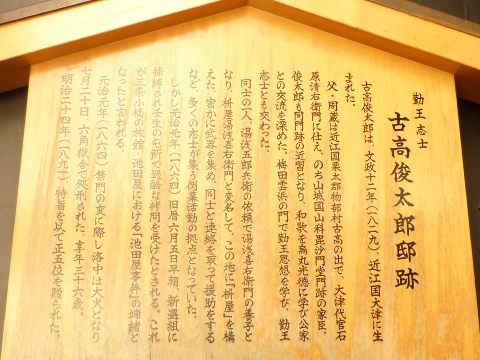 勤王志士
古高俊太郎邸跡
古高俊太郎は、文政十二年(一八二九)近江国大津に生
まれた。
父・周蔵は近江国栗太郡物部村古高の出で、大津代官石
原清右衛門に仕え、のち山城国山科毘沙門堂門跡の家臣。
俊太郎も同門跡の近習となり、和歌を烏丸光徳に学び公家
との交流を深めた。梅田雲浜の門で勤王思想を学び、勤王
志士とも交わった。
同士の一人、湯浅五郎兵衛の依頼で湯浅喜右衛門の養子と
なり、枡屋湯浅喜右衛門と変名して、この地に「枡屋」を構
えた。密かに武器を集め、同士と連絡を取って援助をする
など、多くの志士が集う倒幕活動の拠点となっていた。
しかし元治元年(一八六四)旧暦六月五日早朝、新選組に
捕縛され壬生の屯所で過酷な拷問を受けたとされる。これ
が三条小橋の旅館「池田屋」における「池田屋事件」の端緒と
なったと言われる。
元治元年(一八六四)禁門の変に際し洛中は大火となり
七月二十日、六角獄舎で処刑された。享年三十六歳。
明治二十四年(一八九一)特旨を以て正五位を贈られた。